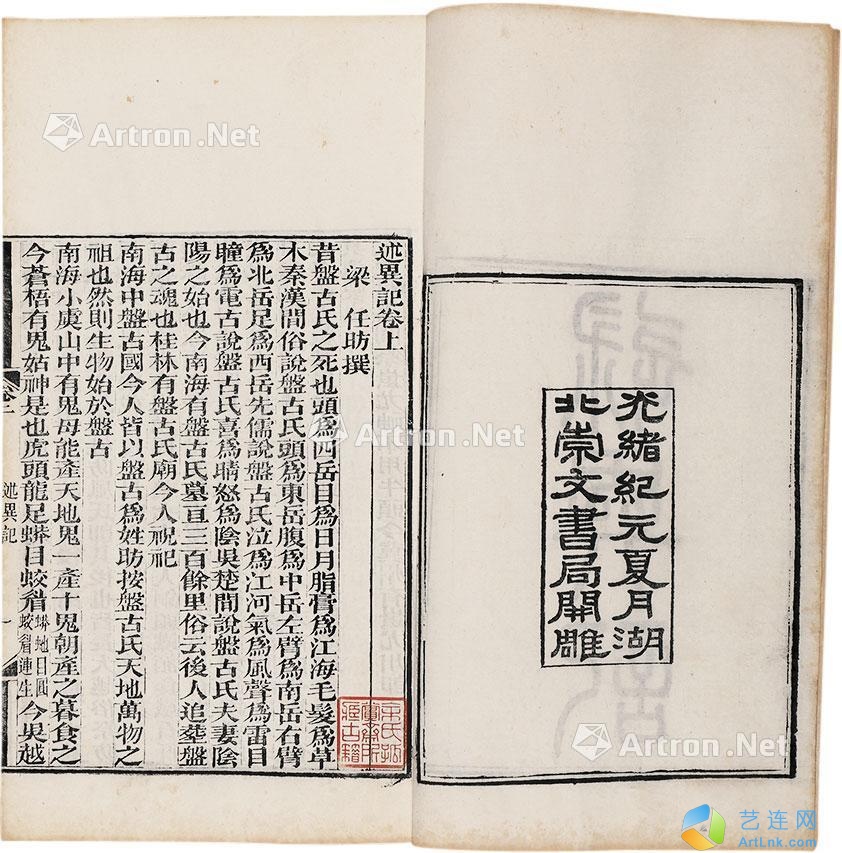 光緒紀元夏月湖
北崇文書局開雕
述異記卷上
梁 任昉撰
昔盤古氏之死也頭為四岳目為日月脂膏為江海毛髮為草
木秦漢間俗說盤古氏頭為東岳腹為中岳左臂為南岳右臂
為北岳足為西岳先儒說盤古氏泣為江河氣為風聲為雷目
瞳為電古說盤古氏喜為晴怒為陰吳楚間說盤古氏夫妻陰
陽之始也今南海有盤古氏墓亘三百餘里俗云後人追葬盤
古之魂也桂林有盤古氏廟今人祝祀
南海中盤古國今人皆以盤古為姓昉按盤古氏天地萬物之
祖也然則生物始於盤古
南海小虞山中有鬼母能產天地鬼一產十鬼朝產之暮食之
今蒼梧有鬼姑神是也虎頭龍足蟒目蛟眉蟒地目圓蛟眉連生今吳越
述異記
一
Artron.Net
Artron.Net
Artron.Net
Artron.Net
艺连网
ArtLnk.Com